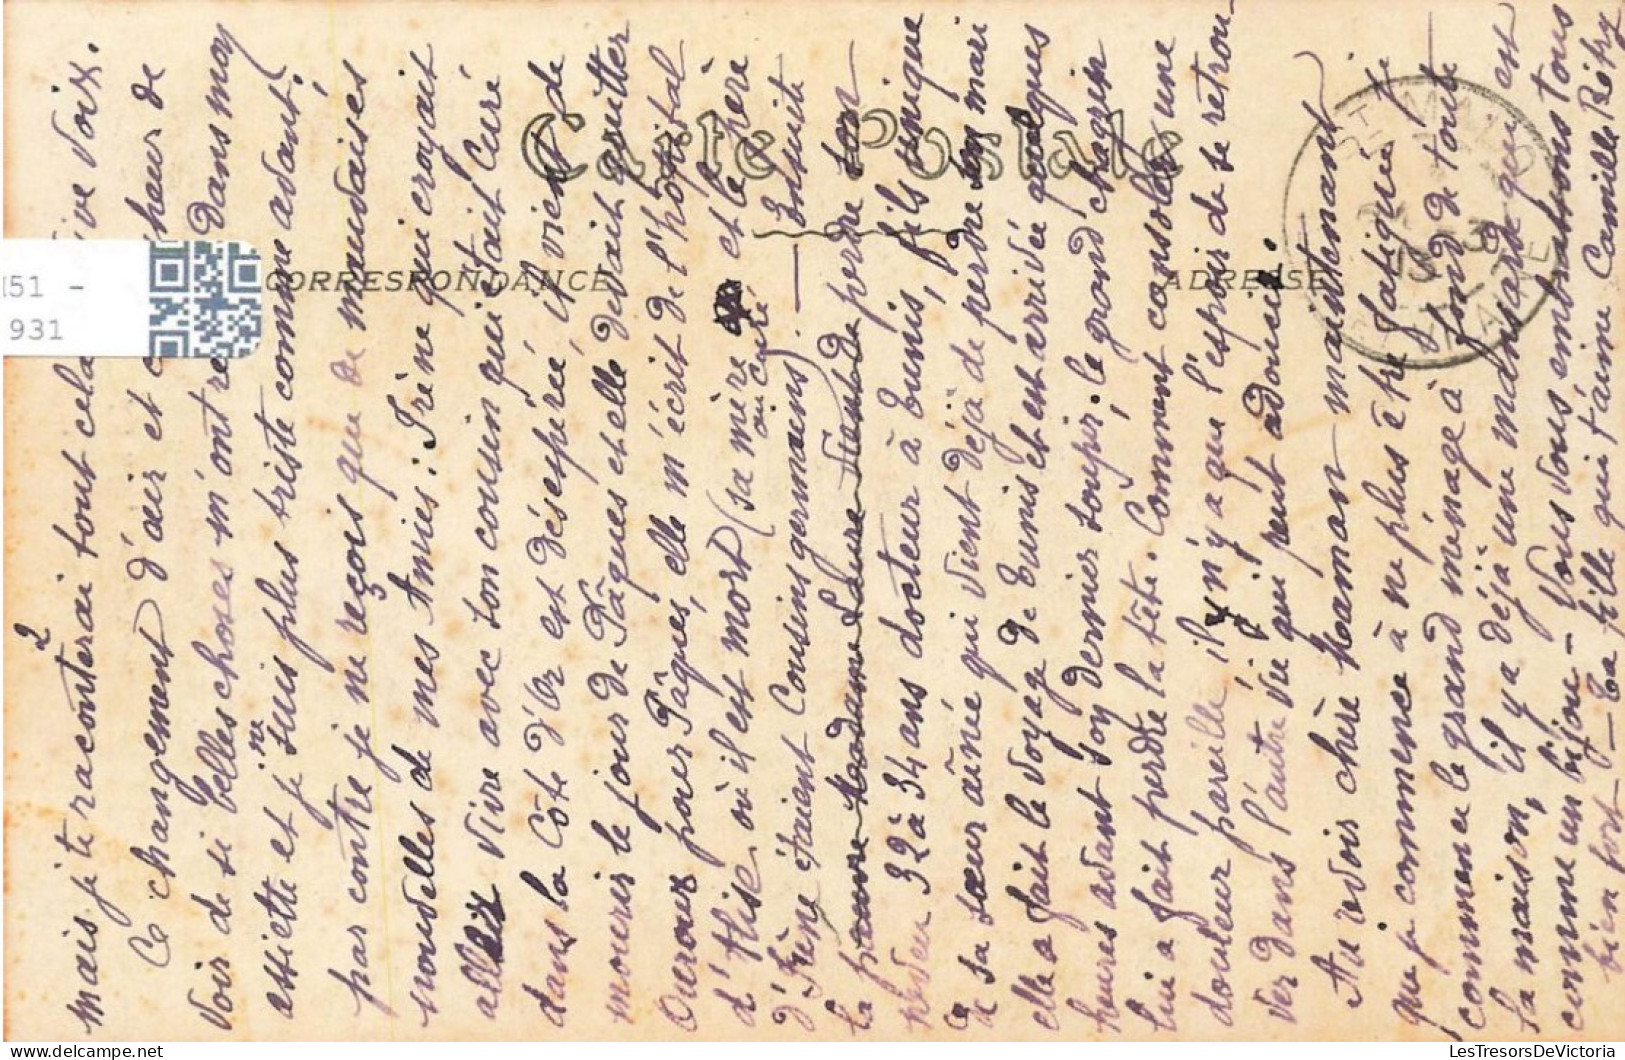 2
mais je te raconterai tout cela vive voix.
Ce changement d'air et heur de
voir de si belles choses m'ont re dans moy
assiette et je suis plus triste comme avant!
ne
par contre je ne reçois que de mauvaises
nouvelles de mes Amies: Irène qui croyait
aller vivre avec son cousin qui était Curé
dans la Côte d'Or est désespérée, il vient de
mourir le jour de Pâques et elle devait quitter
pour Pâques, elle m'écrit de l'hôpital
d' où il est mort (sa mère et le père
ou curé
d'Irène étaient Cousins germains. — Ensuite
la pauvre Madame Laure vient de perdre son
neveu 32 à 34 ans docteur à Tunis, fils unique
de sa sœur aînée qui vient déjà de perdre son mari
elle a fait le voyage de Tunis et est arrivée quelques
heures avant soy dernier soupir. le grand chagrin
lui a fait perdre la tête. Comment consoler une
douleur pareille, il n'y a que l'espoir de se retrou-
ver dans l'autre vie qui peut adoucir.
Au revoir chère maman maintenant
que je commence à ne plus être fatiguée je
commence le grand ménage à fond de toute
la maison, il y a déjà une mansarde qui est
comme un bijou — Nous vous embrassons tous
bien fort — Ta fille qui t'aime Camille Rétry
Carte Postale
CORRESPONDANCE
ADRESSE
151 -
931
LesTresorsDeVictoria - delcampe.net